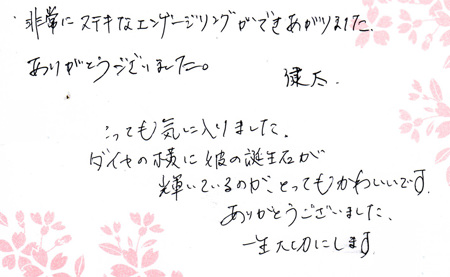 非常にステキなエンゲージリングができあがりました.
ありがとうございました。
健太.
とっても気に入りました.
ダイヤの横に彼の誕生石が
輝いているのが、とってもかわいいです.
ありがとうございました.
一生大切にします